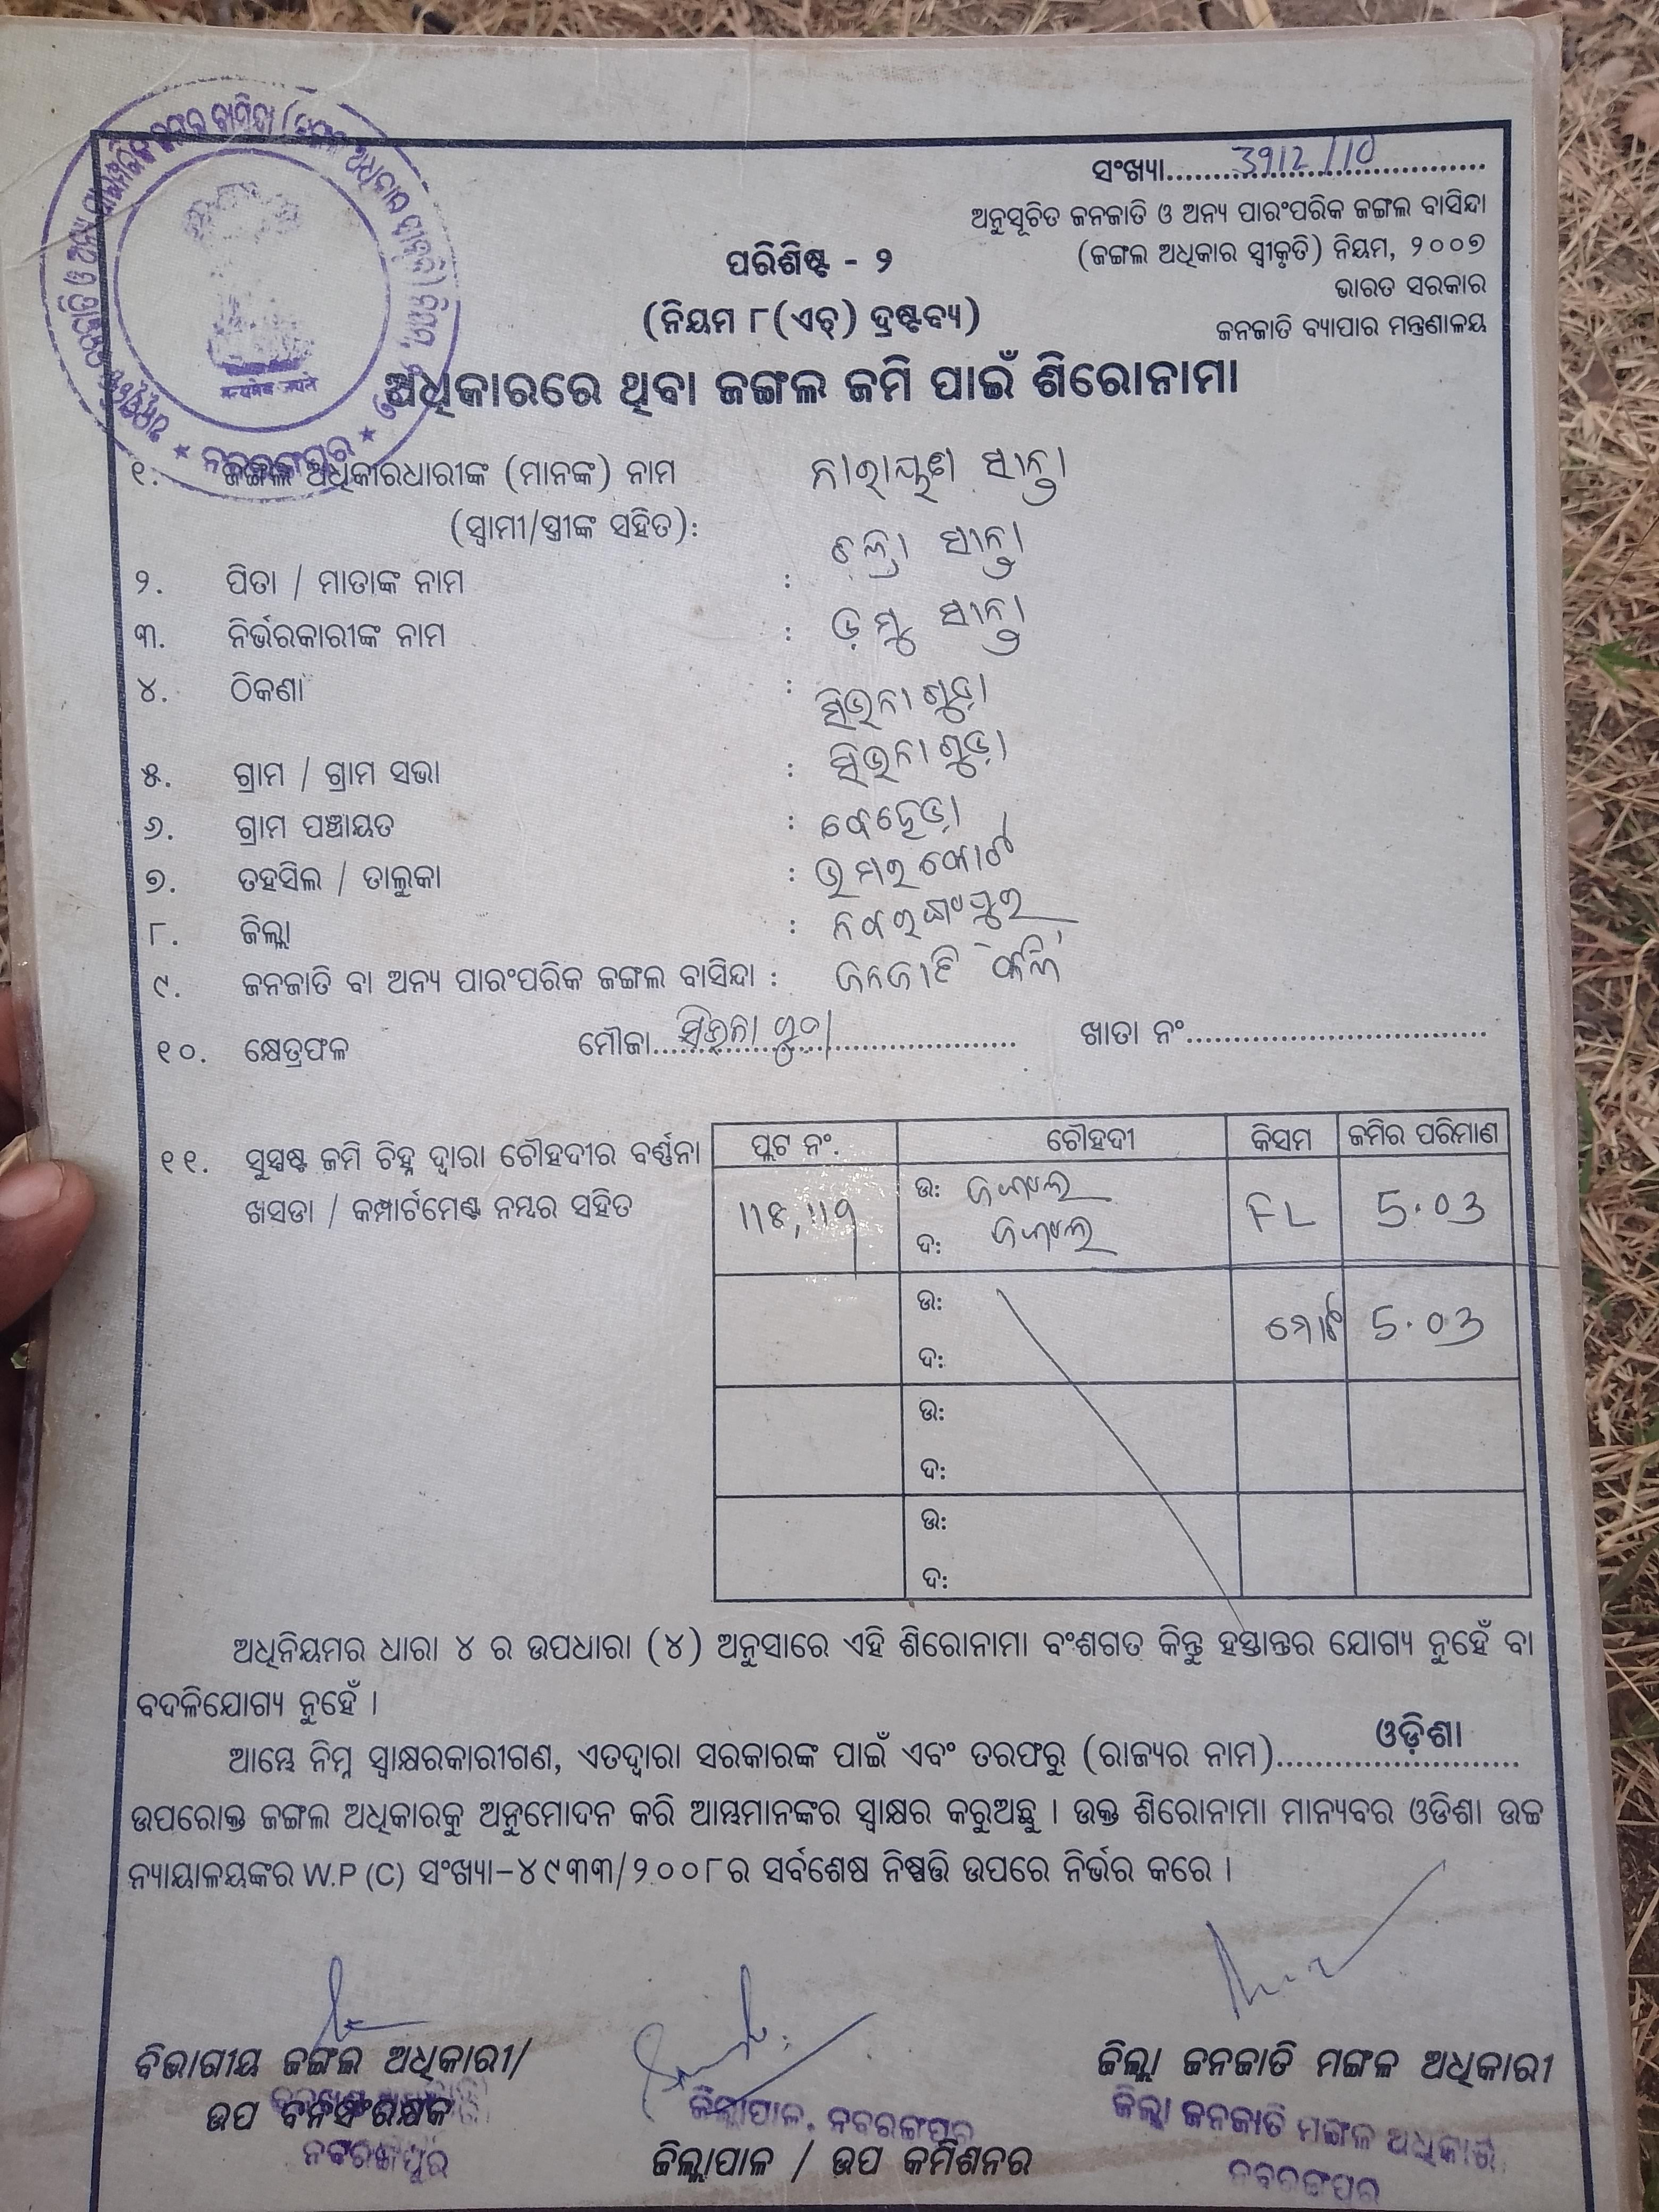 ସଂଖ୍ୟା..........3912/10..........
ଅନୁସୂଚିତ ଜନଜାତି ଓ ଅନ୍ୟ ପାରଂପରିକ ଜଙ୍ଗଲ ବାସିନ୍ଦା
(ଜଙ୍ଗଲ ଅଧିକାର ସ୍ୱୀକୃତି) ନିୟମ, ୨୦୦୭
ଭାରତ ସରକାର
ଜନଜାତି ବ୍ୟାପାର ମନ୍ତ୍ରଣାଳୟ
ପରିଶିଷ୍ଟ - ୨
(ନିୟମ ୮(ଏଚ୍) ଦ୍ରଷ୍ଟବ୍ୟ)
ଅଧିକାରରେ ଥିବା ଜଙ୍ଗଲ ଜମି ପାଇଁ ଶିରୋନାମା
୧. ଜଙ୍ଗଲ ଅଧିକାରଧାରୀଙ୍କ (ମାନଙ୍କ) ନାମ ନାରାୟଣ ସାନ୍ତା
(ସ୍ୱାମୀ/ସ୍ତ୍ରୀଙ୍କ ସହିତ):
୨. ପିତା / ମାତାଙ୍କ ନାମ : ସାନ୍ତା
୩. ନିର୍ଭରକାରୀଙ୍କ ନାମ : ସାନ୍ତା
୪. ଠିକଣା : ସିଉନାଗୁଡ଼ା
୫. ଗ୍ରାମ / ଗ୍ରାମ ସଭା : ସିଉନାଗୁଡ଼ା
୬. ଗ୍ରାମ ପଞ୍ଚାୟତ : ବେହେଡ଼ା
୭. ତହସିଲ / ତାଲୁକା : ଉମରକୋଟ
୮. ଜିଲ୍ଲା : ନବରଙ୍ଗପୁର
୯. ଜନଜାତି ବା ଅନ୍ୟ ପାରଂପରିକ ଜଙ୍ଗଲ ବାସିନ୍ଦା : ଜନଜାତି
୧୦. କ୍ଷେତ୍ରଫଳ ମୌଜା....ସିଉନାଗୁଡା.......... ଖାତା ନଂ..........
୧୧. ସୁସ୍ପଷ୍ଟ ଜମି ଚିହ୍ନ ଦ୍ୱାରା ଚୌହଦୀର ବର୍ଣ୍ଣନା
ଖସଡା / କମ୍ପାର୍ଟମେଣ୍ଟ ନମ୍ବର ସହିତ
ପ୍ଲଟ ନଂ. ଚୌହଦୀ କିସମ ଜମିର ପରିମାଣ
ଉ: ଜଙ୍ଗଲ FL 5.03
ଦ: ଜଙ୍ଗଲ
ଉ: ମୋଟ 5.03
ଦ:
ଉ:
ଦ:
ଉ:
ଦ:
ଅଧିନିୟମର ଧାରା ୪ ର ଉପଧାରା (୪) ଅନୁସାରେ ଏହି ଶିରୋନାମା ବଂଶଗତ କିନ୍ତୁ ହସ୍ତାନ୍ତର ଯୋଗ୍ୟ ନୁହେଁ ବା
ବଦଳିଯୋଗ୍ୟ ନୁହେଁ ।
ଆମ୍ଭେ ନିମ୍ନ ସ୍ୱାକ୍ଷରକାରୀଗଣ, ଏତଦ୍ୱାରା ସରକାରଙ୍କ ପାଇଁ ଏବଂ ତରଫରୁ (ରାଜ୍ୟର ନାମ)..........ଓଡ଼ିଶା..........
ଉପରୋକ୍ତ ଜଙ୍ଗଲ ଅଧିକାରକୁ ଅନୁମୋଦନ କରି ଆମ୍ଭମାନଙ୍କର ସ୍ୱାକ୍ଷର କରୁଅଛୁ । ଉକ୍ତ ଶିରୋନାମା ମାନ୍ୟବର ଓଡିଶା ଉଚ୍ଚ
ନ୍ୟାୟାଳୟଙ୍କର W.P (C) ସଂଖ୍ୟା–୪୯୩୩/୨୦୦୮ର ସର୍ବଶେଷ ନିଷ୍ପତ୍ତି ଉପରେ ନିର୍ଭର କରେ ।
ବିଭାଗୀୟ ଜଙ୍ଗଲ ଅଧିକାରୀ/
ଉପ ବନସଂରକ୍ଷକ
ନବରଙ୍ଗପୁର
ଜିଲ୍ଲାପାଳ, ନବରଙ୍ଗପୁର
ଜିଲ୍ଲାପାଳ / ଉପ କମିଶନର
ଜିଲ୍ଲା ଜନଜାତି ମଙ୍ଗଳ ଅଧିକାରୀ
ଜିଲ୍ଲା ଜନଜାତି ମଙ୍ଗଳ ଅଧିକାରୀ
ନବରଙ୍ଗପୁର